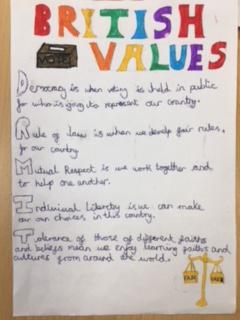 BRITISH
VALUES
Democracy is when voting is held in public
for who is going to represent our country.
Rule of law is when we develp fair rules.
for our country
Mutual Respect is we work together and
to help one another.
Individual Liberty is we can make
our own choices in this country.
Tolerance of those of different faiths
and beliefs mean we enjoy learning faiths and
cultures from around the world.
FAIR